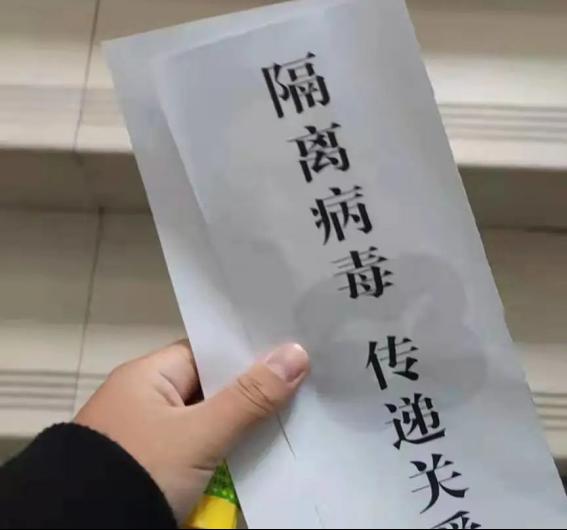 隔离病毒 传递关